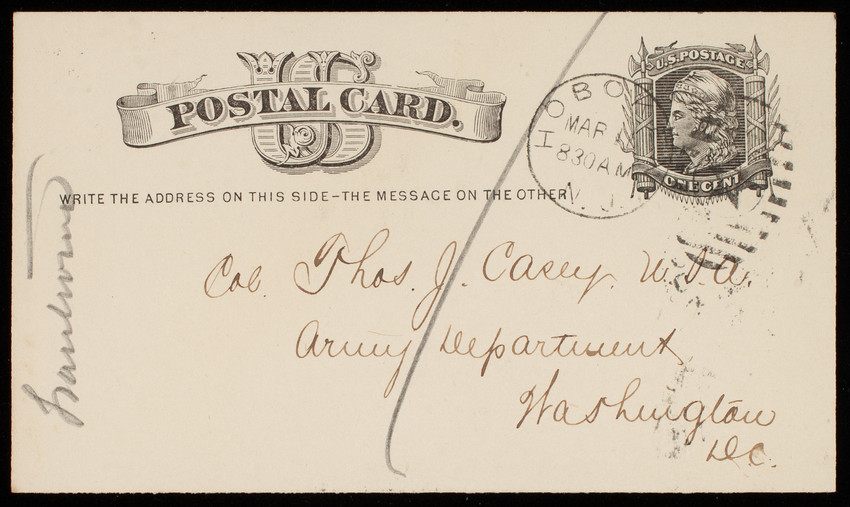 US
POSTAL CARD.
U.S. POSTAGE
ONE CENT
HOBO
MAR
830 AM
N.J.
WRITE THE ADDRESS ON THIS SIDE - THE MESSAGE ON THE OTHER
Col. Thos. J. Casey. U.S.A.
Army Department
Washington
D.C.